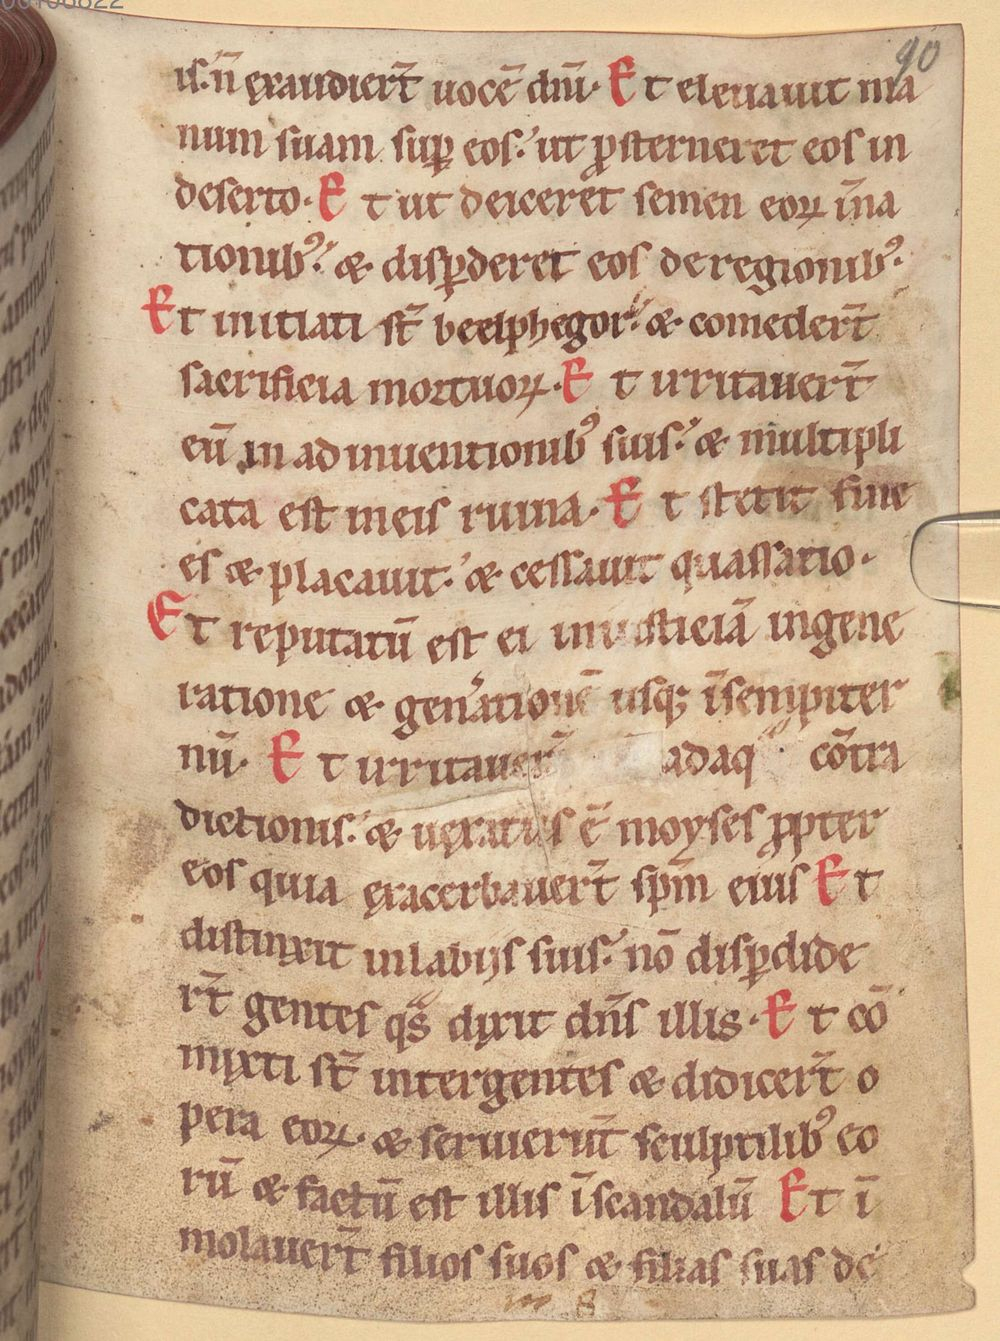 90
is. n̄ exaudier̄t uocē dn̄i. Et eleuauit ma
num suam suꝑ eos. ut ꝓsterneret eos in
deserto. Et ut deiceret semen eoꝝ īna
tionibꝰ. & disꝑderet eos de regionibꝰ.
Et initiati st̄ beelphegor. & comeder̄t
sacrificia mortuoꝝ. Et irritauer̄t
eū in adinuentionibꝰ suis. & multipli
cata est in eis ruina. Et stetit fine
es & placauit. & cessauit quassatio.
Et reputatū est ei in iusticiā in gene
ratione & gen̄ationē usqꝫ ī sempiter
nū. Et irritauer̄ ad aq cōtra
dictionis. & uexatus ē moyses ꝓpter
eos quia exacerbauer̄t sp̄m eius Et
distinxit in labijs suis. nō disꝑdide
r̄t gentes qs̄ dixit dn̄s illis. Et cō
mixti st̄ inter gentes & didicer̄t o
pera eoꝝ. & seruierūt sculptilibꝰ eo
rū & factū est illis ī scandalū Et ī
molauer̄t filios suos & filias suas de